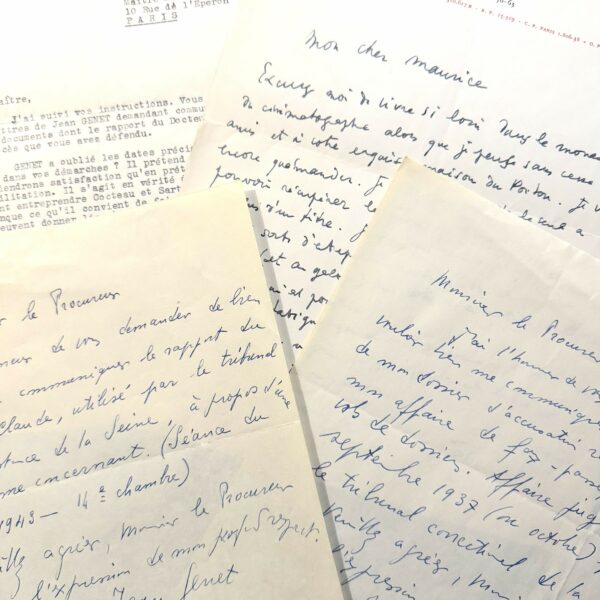 10 Rue de l'Eperon
PARIS
aître,
J'ai suivi vos instructions. Vous
ttres de Jean GENET demandant commu
documents dont le rapport du Docteu
cès que vous avez défendu.
GENET a oublié les dates préci
dans vos démarches ? Il prétend
endrons satisfaction qu'en prét
ilitation. Il s'agit en vérité
nt entreprendre Cocteau et Sart
nque ce qu'il convient de
euvent donner l
Mon cher Maurice
Excusez moi de vivre si loin dans le
du cinématographe alors que je pense sans cesse
amis et à votre exquise maison du
encore quémander. Je
pouvoir récupérer le
d'un titre.
le Procureur
neur de vous demander de bien
communiquer le rapport du
Claude, utilisé par le tribunal
stance de la Seine, à propos d'une
me concernant. (Séance du
1943 - 14e chambre)
illez agréer, Monsieur le Procureur
l'expression de mon profond respect.
Jean Genet
Monsieur le Procureur
J'ai l'honneur de
vouloir bien me communiquer
de mon dossier d'accusation
mon affaire de faux-
vols de dossier. Affaire jug
septembre 1937 (ou octobre)
le tribunal correctionnel de la
Veuillez agréer, Mon
l'expression